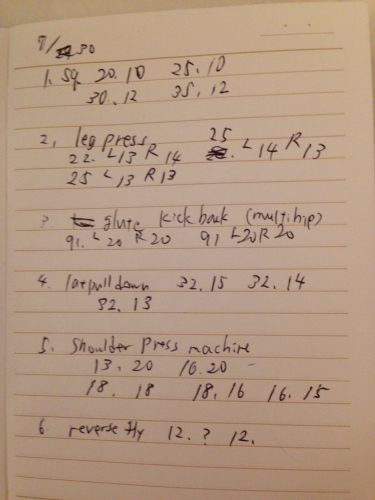 7/30
1. Sq 20.10 25.10
30.12 35.12
2, leg press 25
22. L13 R14 . L14 R13
25 L13 R13
3 glute kick back (multihip)
91. L20 R20 91 L20 R20
4. lat pull down 32.15 32.14
32.13
5. Shoulder Press machine
13.20 16.20
18.18 18.16 16.15
6. reverse fly 12.? 12.